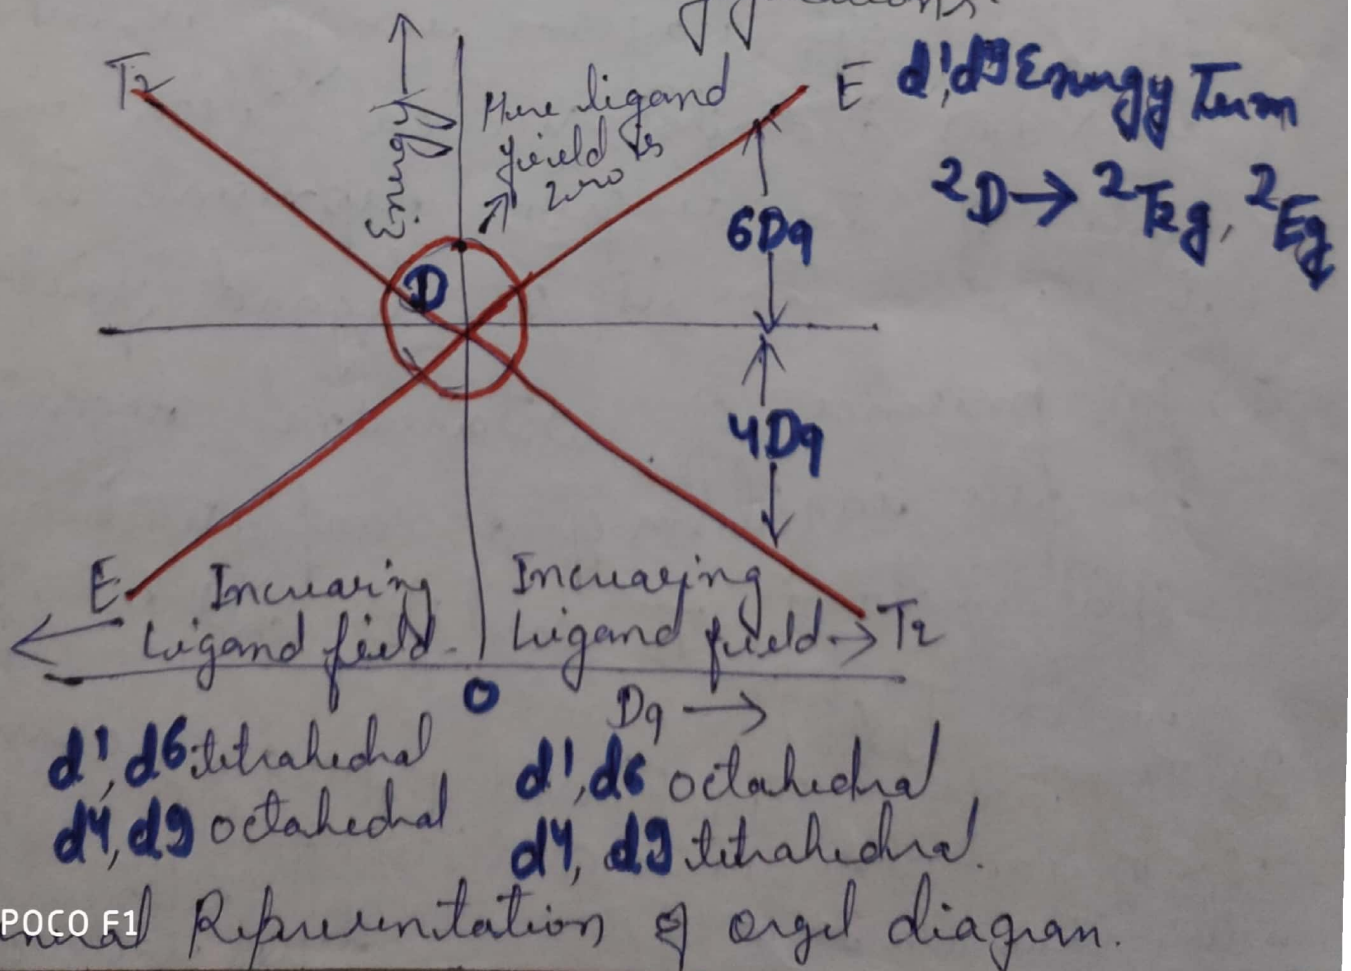 T2
Energy
Here ligand
field is
zero
E
d1, d9 Energy Term
2D → 2T2g, 2Eg
D
6Dq
4Dq
E
Increasing
Ligand field.
Increasing
Ligand field →
T2
0
Dq →
d1, d6 tetrahedral
d4, d9 octahedral
d1, d6 octahedral
d4, d9 tetrahedral.
Representation of orgel diagram.
POCO F1